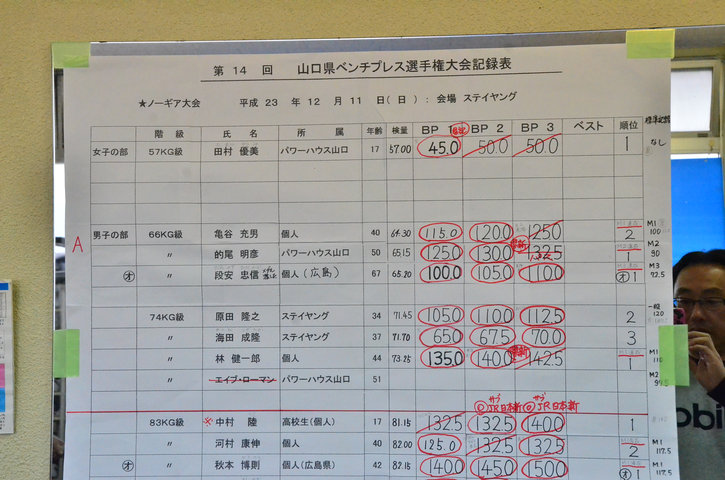 第 14 回 山口県ベンチプレス選手権大会記録表
★ノーギア大会 平成 23 年 12 月 11 日(日): 会場 ステイヤング
階 級 氏 名 所 属 年齢 検量 BP 1 BP 2 BP 3 ベスト 順位
女子の部 57KG級 田村 優美 パワーハウス山口 17 57.00 45.0 50.0 50.0 1 なし
A
男子の部 66KG級 亀谷 充男 個人 40 64.30 115.0 120.0 125.0 2 M1 100
〃 的尾 明彦 パワーハウス山口 50 65.15 125.0 130.0 132.5 1 M2 90
オ 〃 段安 忠信 個人(広島) 67 65.20 100.0 105.0 110.0 オ 1 M3 72.5
74KG級 原田 隆之 ステイヤング 34 71.45 105.0 110.0 112.5 2 一般 120
〃 海田 成隆 ステイヤング 37 71.70 65.0 67.5 70.0 3
〃 林 健一郎 個人 44 73.25 135.0 140.0 142.5 1 M1 110
〃 エイブ・ローマン パワーハウス山口 51 M2
サブ◎JR日本新 サブ◎JR日本新
83KG級 ※中村 陸 高校生(個人) 17 81.15 132.5 132.5 140.0 1
〃 河村 康伸 個人 40 82.00 125.0 132.5 132.5 2 M1 117.5
オ 〃 秋本 博則 個人(広島県) 42 82.15 140.0 145.0 150.0 オ 1 M1 117.5